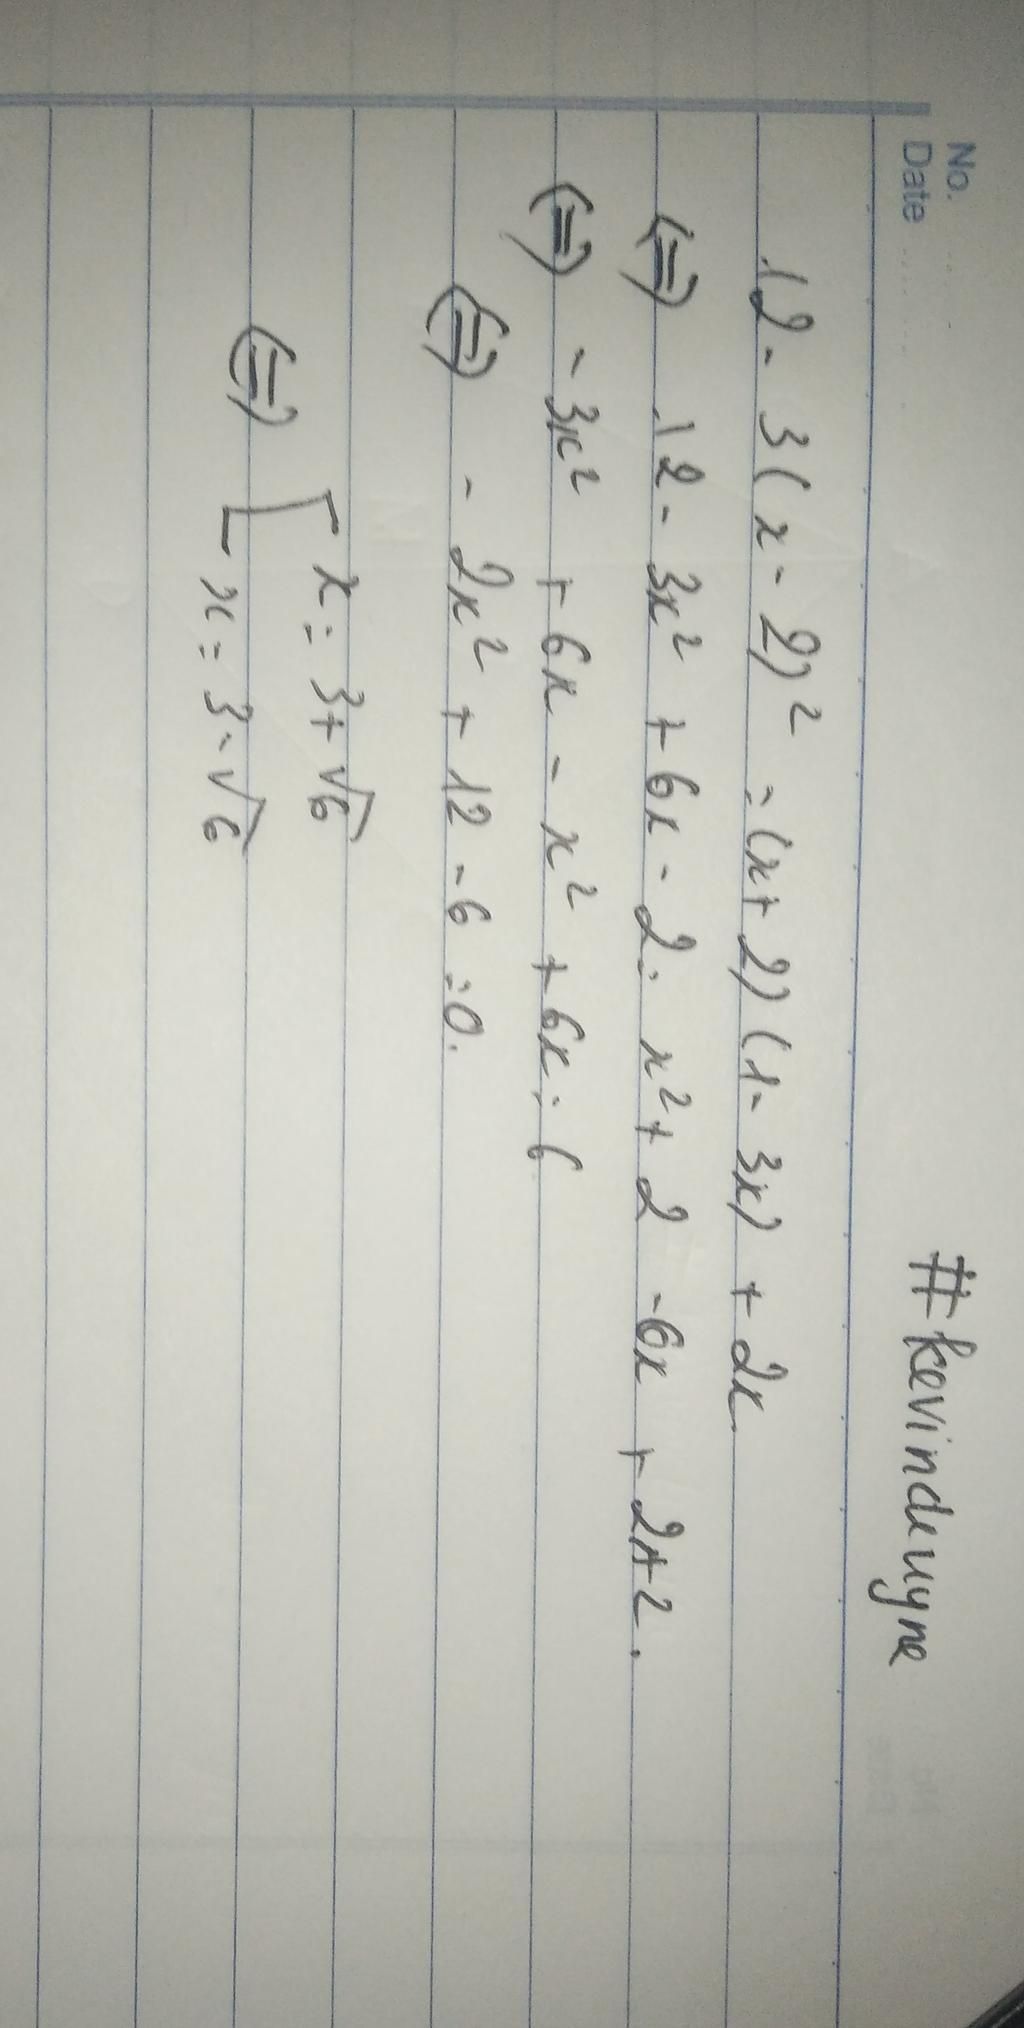 No.
Date
#kevindeuyne
12 - 3(x - 2)² = (x + 2)(1 - 3x) + 2x
(=) 12 - 3x² + 6x - 2 = x² + 2 - 6x + 2x+2.
(=) - 3x² + 6x - x² + 6x = 6
(=) - 2x² + 12 - 6 = 0.
x = 3 + √6
(=) [
x = 3 - √6